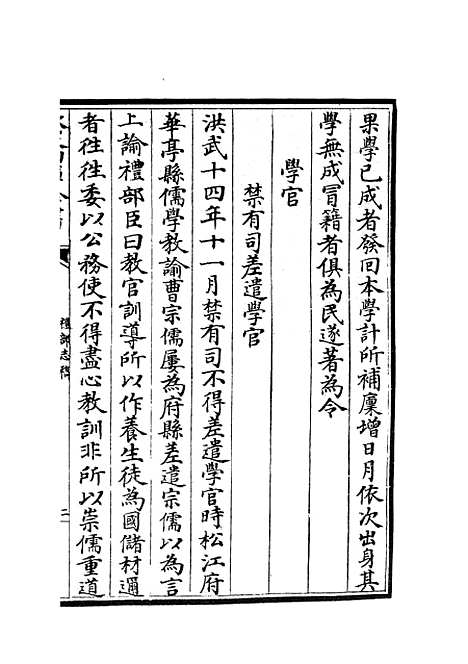 果學已成者發回本學計所補廩增日月依次出身其
學無成冒籍者俱為民遂著為令
學官
禁有司差遣學官
洪武十四年十一月禁有司不得差遣學官時松江府
華亭縣儒學教諭曹宗儒屢為府縣差遣宗儒以為言
上諭禮部臣曰教官訓導所以作養生徒為國儲材邇
者往往委以公務使不得盡心教訓非所以崇儒重道
禮部志稿
二